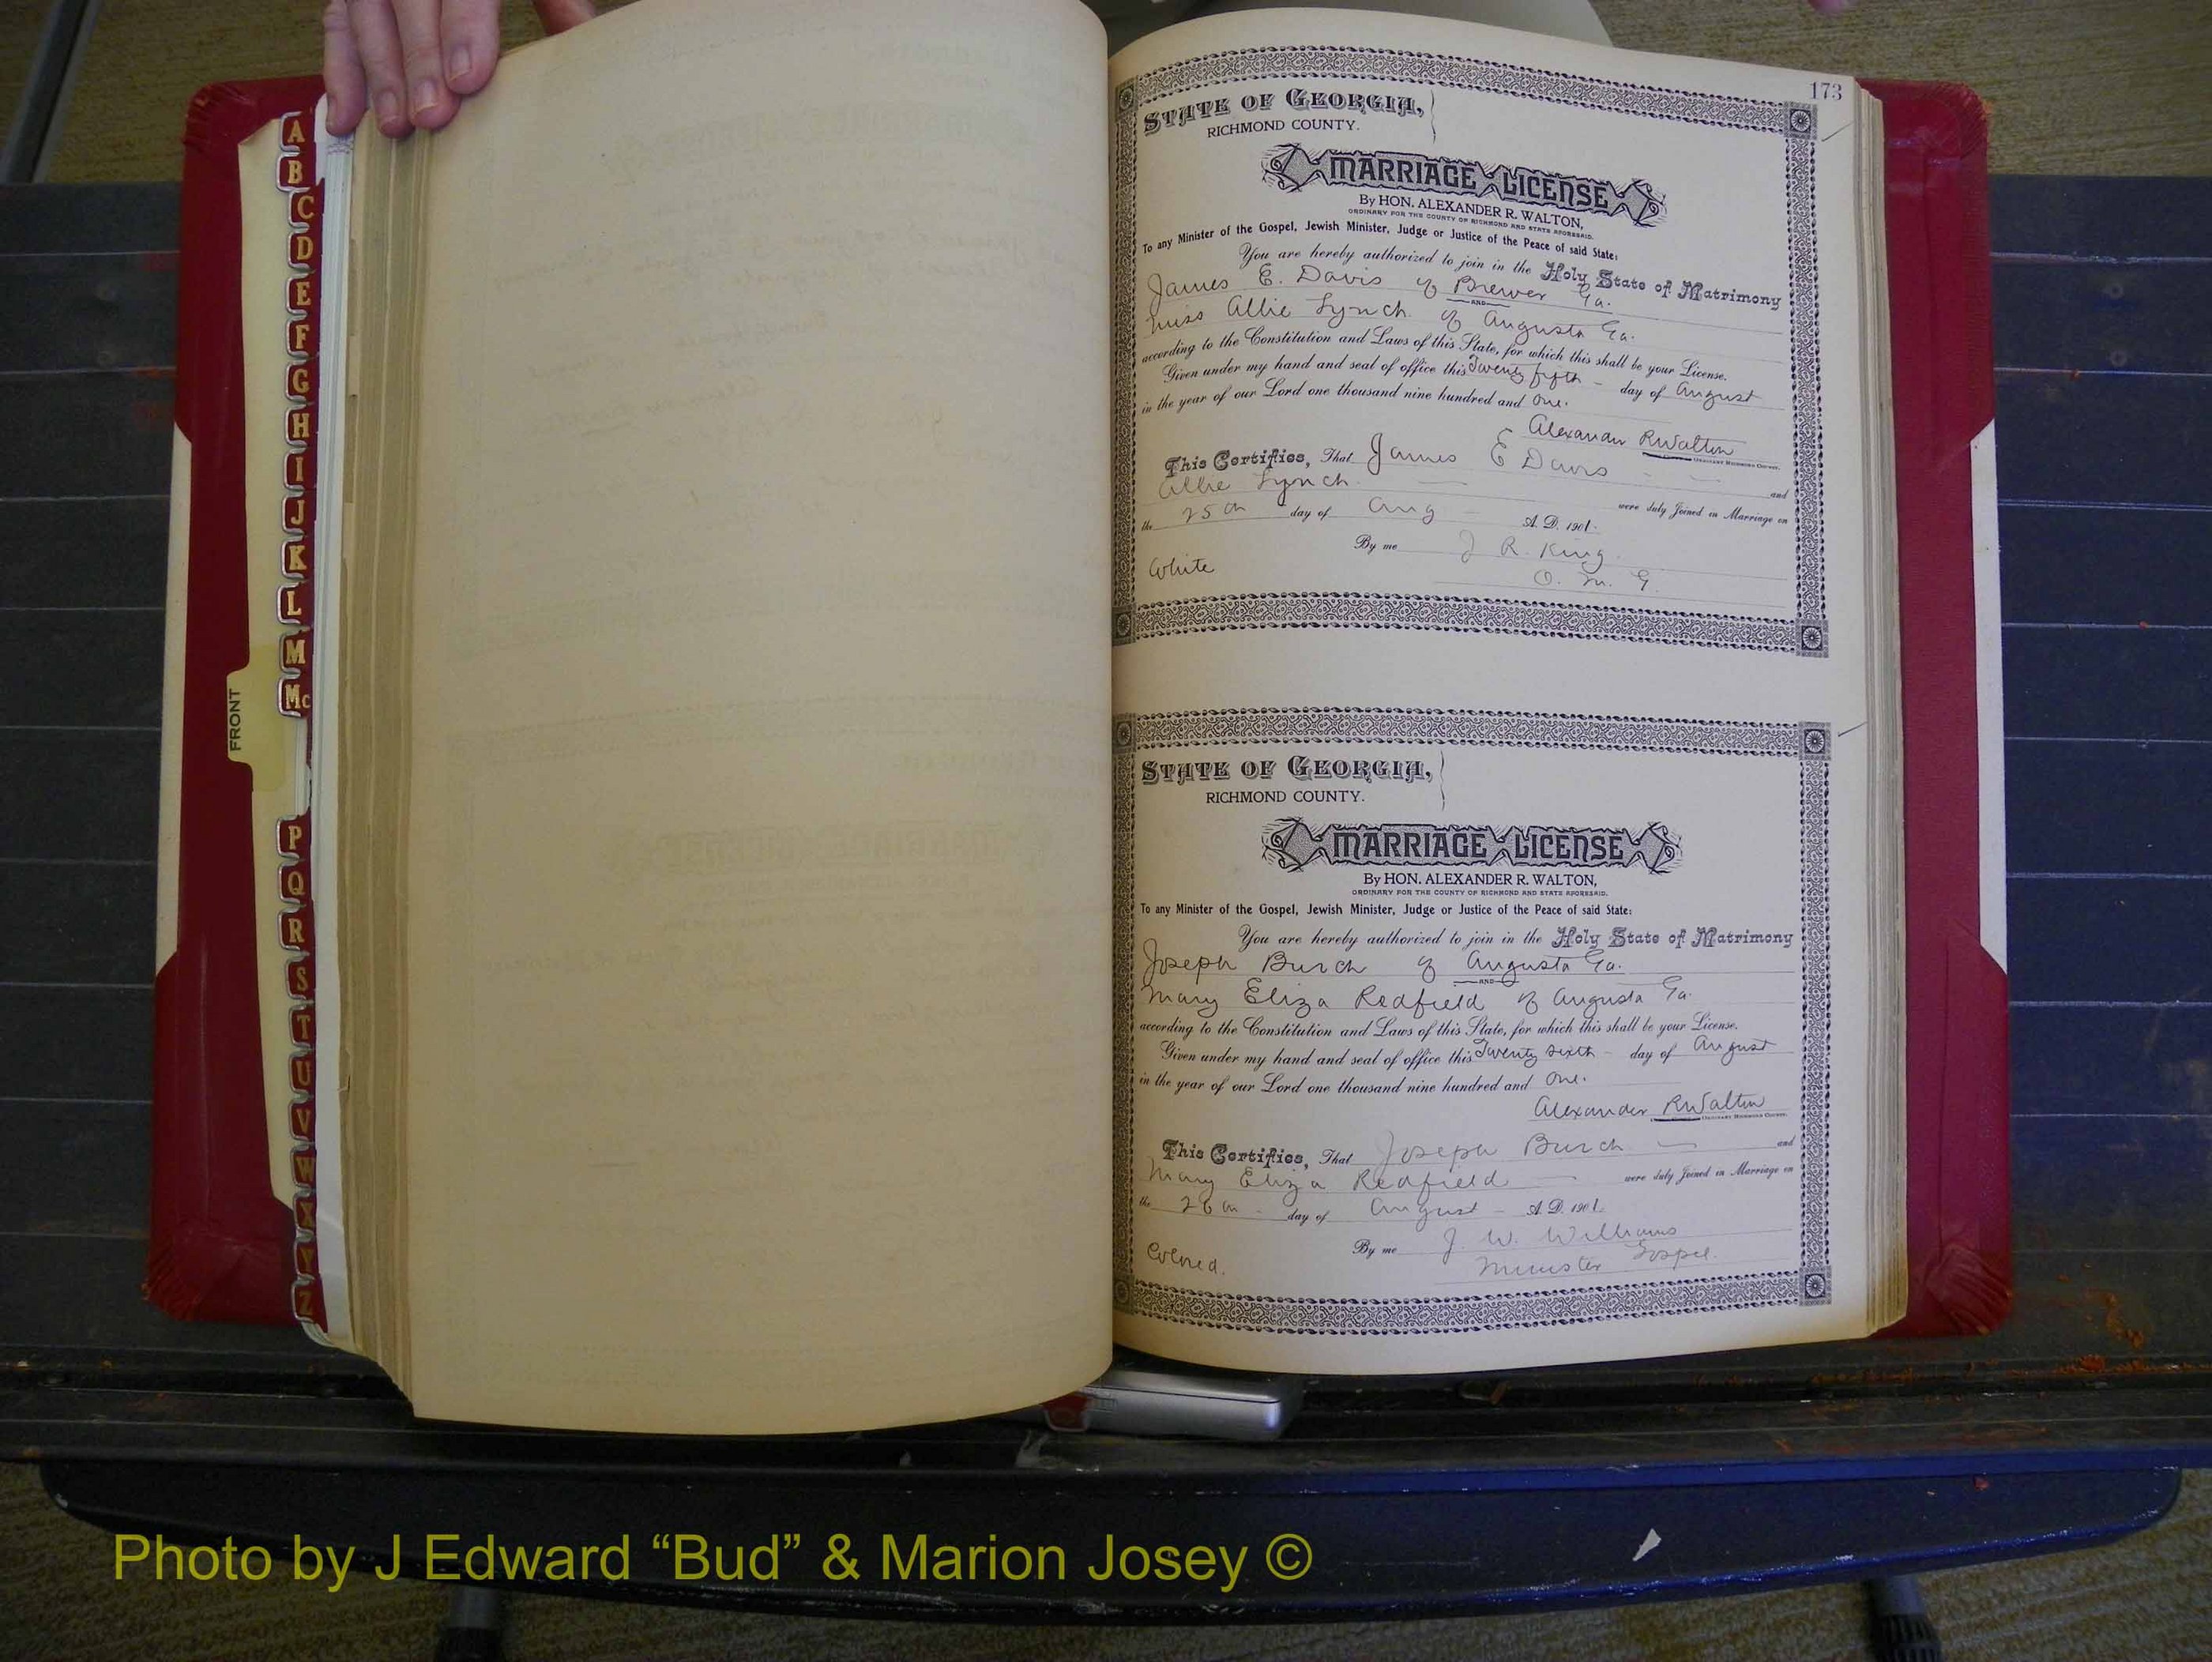 A
B
C
D
E
F
G
H
I
J
K
L
M
Mc
FRONT
P
Q
R
S
T
U
V
W
X
Y
Z
173
STATE OF GEORGIA,
RICHMOND COUNTY.
MARRIAGE LICENSE
By HON. ALEXANDER R. WALTON,
ORDINARY FOR THE COUNTY OF RICHMOND AND STATE AFORESAID.
To any Minister of the Gospel, Jewish Minister, Judge or Justice of the Peace of said State:
You are hereby authorized to join in the Holy State of Matrimony
James E. Davis of Brewer Ga.
AND
Miss Allie Lynch of Augusta Ga.
according to the Constitution and Laws of this State, for which this shall be your License.
Given under my hand and seal of office this Twenty fifth - day of August
in the year of our Lord one thousand nine hundred and One.
Alexander R Walton
ORDINARY RICHMOND COUNTY.
This Certifies, That James E Davis and
Allie Lynch were duly Joined in Marriage on
the 25th day of Aug A. D. 1901.
By me J R. King
White O. M. G.
STATE OF GEORGIA,
RICHMOND COUNTY.
MARRIAGE LICENSE
By HON. ALEXANDER R. WALTON,
ORDINARY FOR THE COUNTY OF RICHMOND AND STATE AFORESAID.
To any Minister of the Gospel, Jewish Minister, Judge or Justice of the Peace of said State:
You are hereby authorized to join in the Holy State of Matrimony
Joseph Burch of Augusta Ga.
AND
Mary Eliza Redfield of Augusta Ga.
according to the Constitution and Laws of this State, for which this shall be your License.
Given under my hand and seal of office this Twenty sixth - day of August
in the year of our Lord one thousand nine hundred and One.
Alexander R Walton
ORDINARY RICHMOND COUNTY.
This Certifies, That Joseph Burch and
Mary Eliza Redfield were duly Joined in Marriage on
the 26th day of August A. D. 1901.
By me J. W. Williams
Colored. Minister Gospel.
Photo by J Edward “Bud” & Marion Josey ©